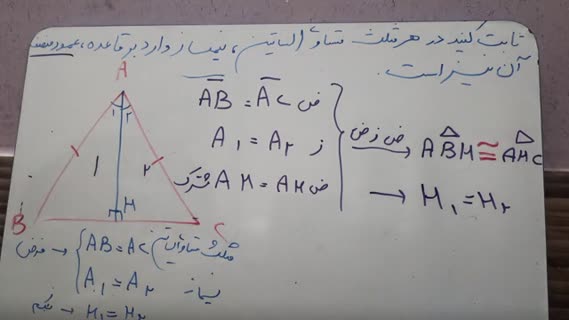 ثابت کنید در هر مثلث متساوی الساقین، نیمساز وارد بر قاعده، عمود منصف
آن نیز است.
A
۱ ۲
۱ ۲
H
B C
AB = AC ض
A۱ = A۲ ز
AH = AH مشترک ض
ض ز ض → ABH ≅ AHC
→ H۱ = H۲
فرض → AB = AC (مثلث متساوی الساقین)
A۱ = A۲ نیمساز
حکم → H۱ = H۲